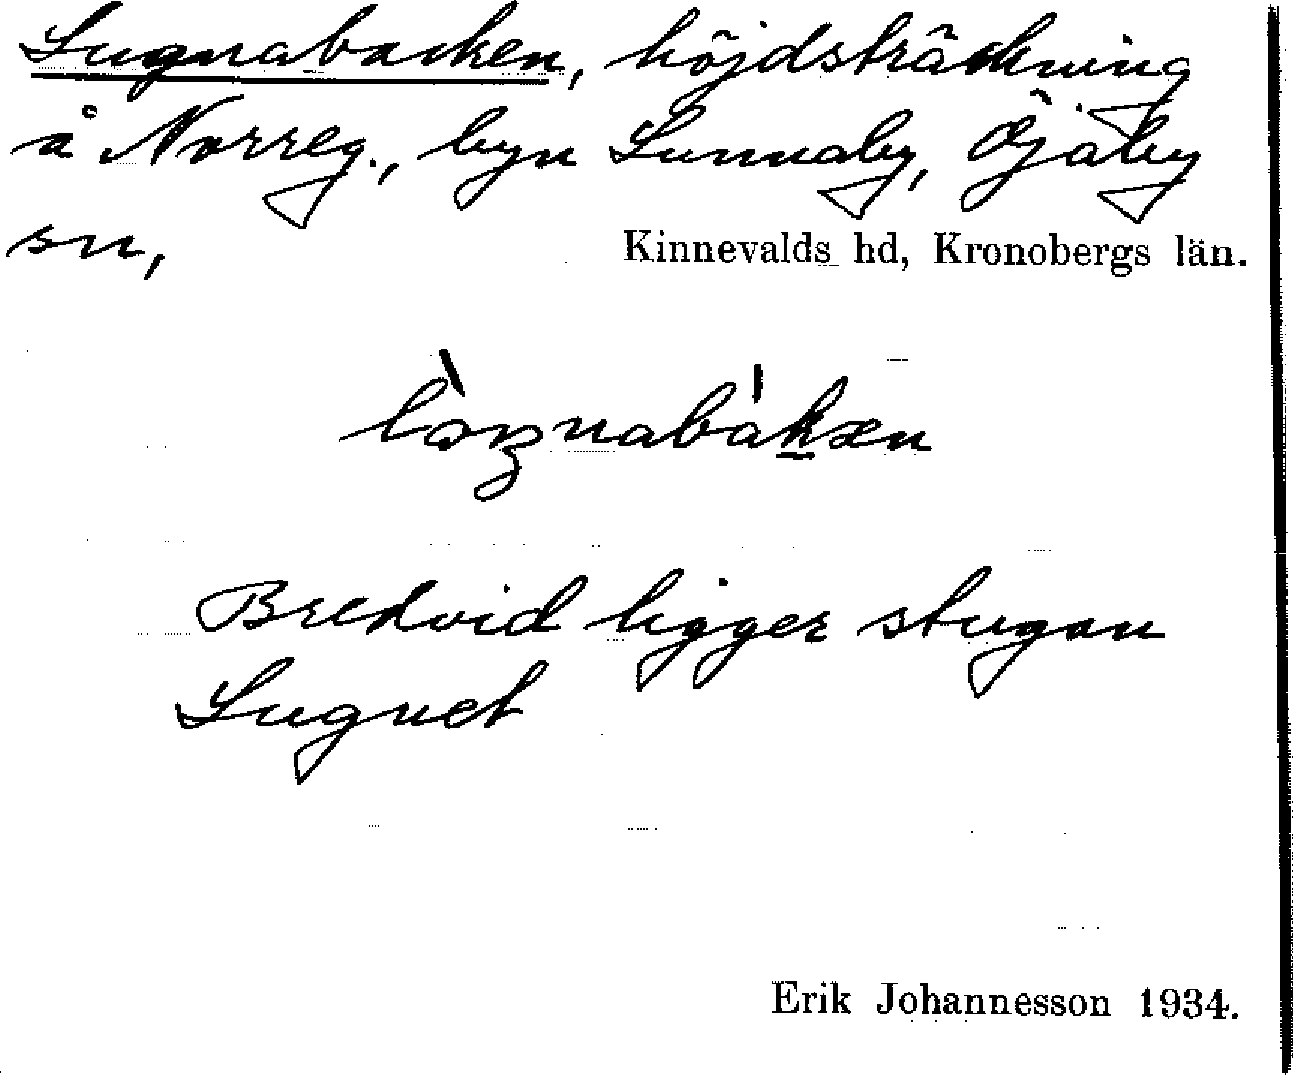 Lugnabacken, höjdsträckning
å Norreg., byn Lunnaby, Öjaby
sn,
Kinnevalds hd, Kronobergs län.
Bredvid ligger stugan
Lugnet
Erik Johannesson 1934.